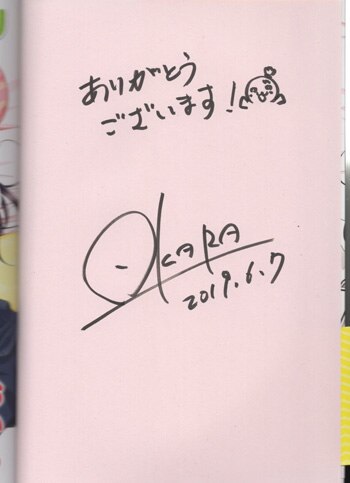 ありがとう
ございます!
OKARA
2019.6.7